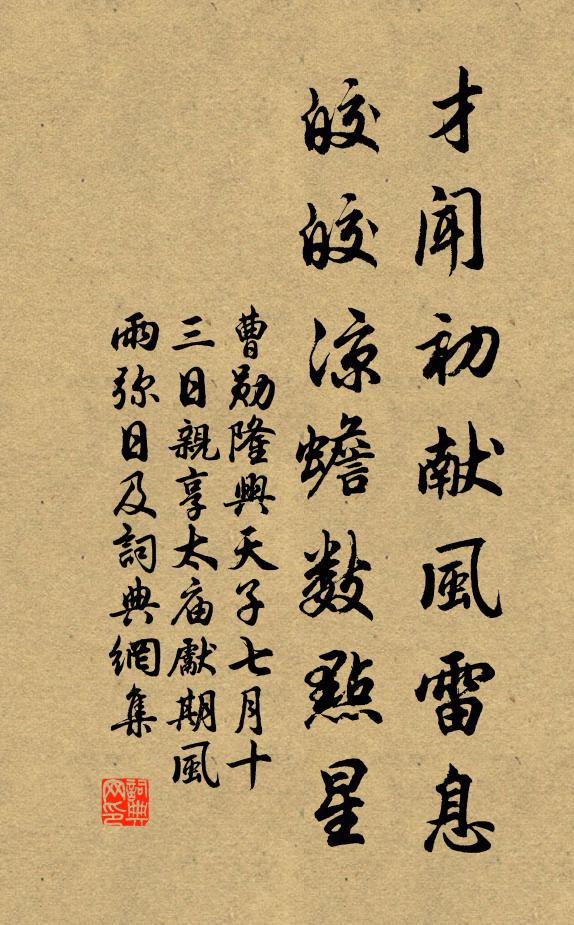 才闻初献風雷息
皎皎凉蟾数點星
曹勋隆興天子七月十
三日親享太庙獻期風
雨弥日及詞典網集
詞典
网印